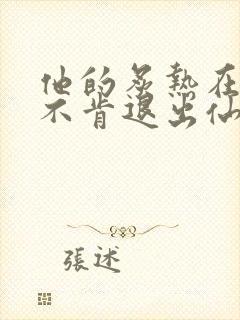 他的炙熱在
不肯退出仙
張述